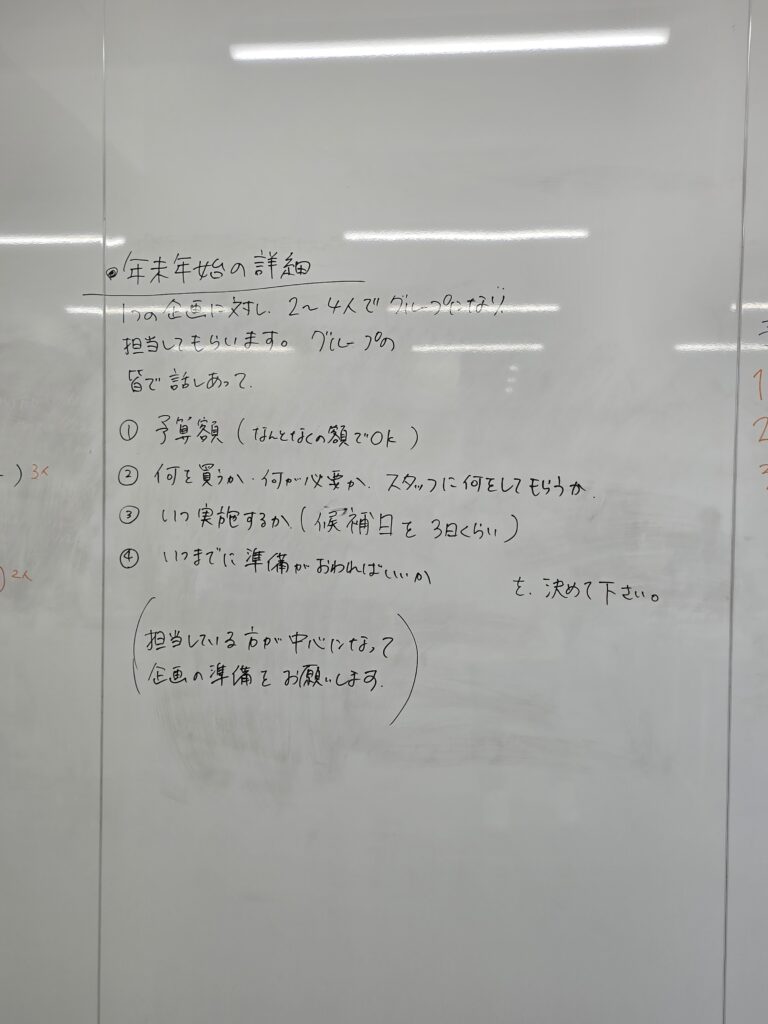 ●年末年始の詳細
1つの企画に対し、2〜4人でグループになり、
担当してもらいます。グループの
皆で話しあって、
① 予算額(なんとなくの額でOK)
② 何を買うか・何が必要か、スタッフに何をしてもらうか、
③ いつ実施するか(候補日を3日くらい)
④ いつまでに準備がおわればいいか
を、決めて下さい。
(担当している方が中心になって
企画の準備をお願いします。)
)3人
)2人
1
2
3